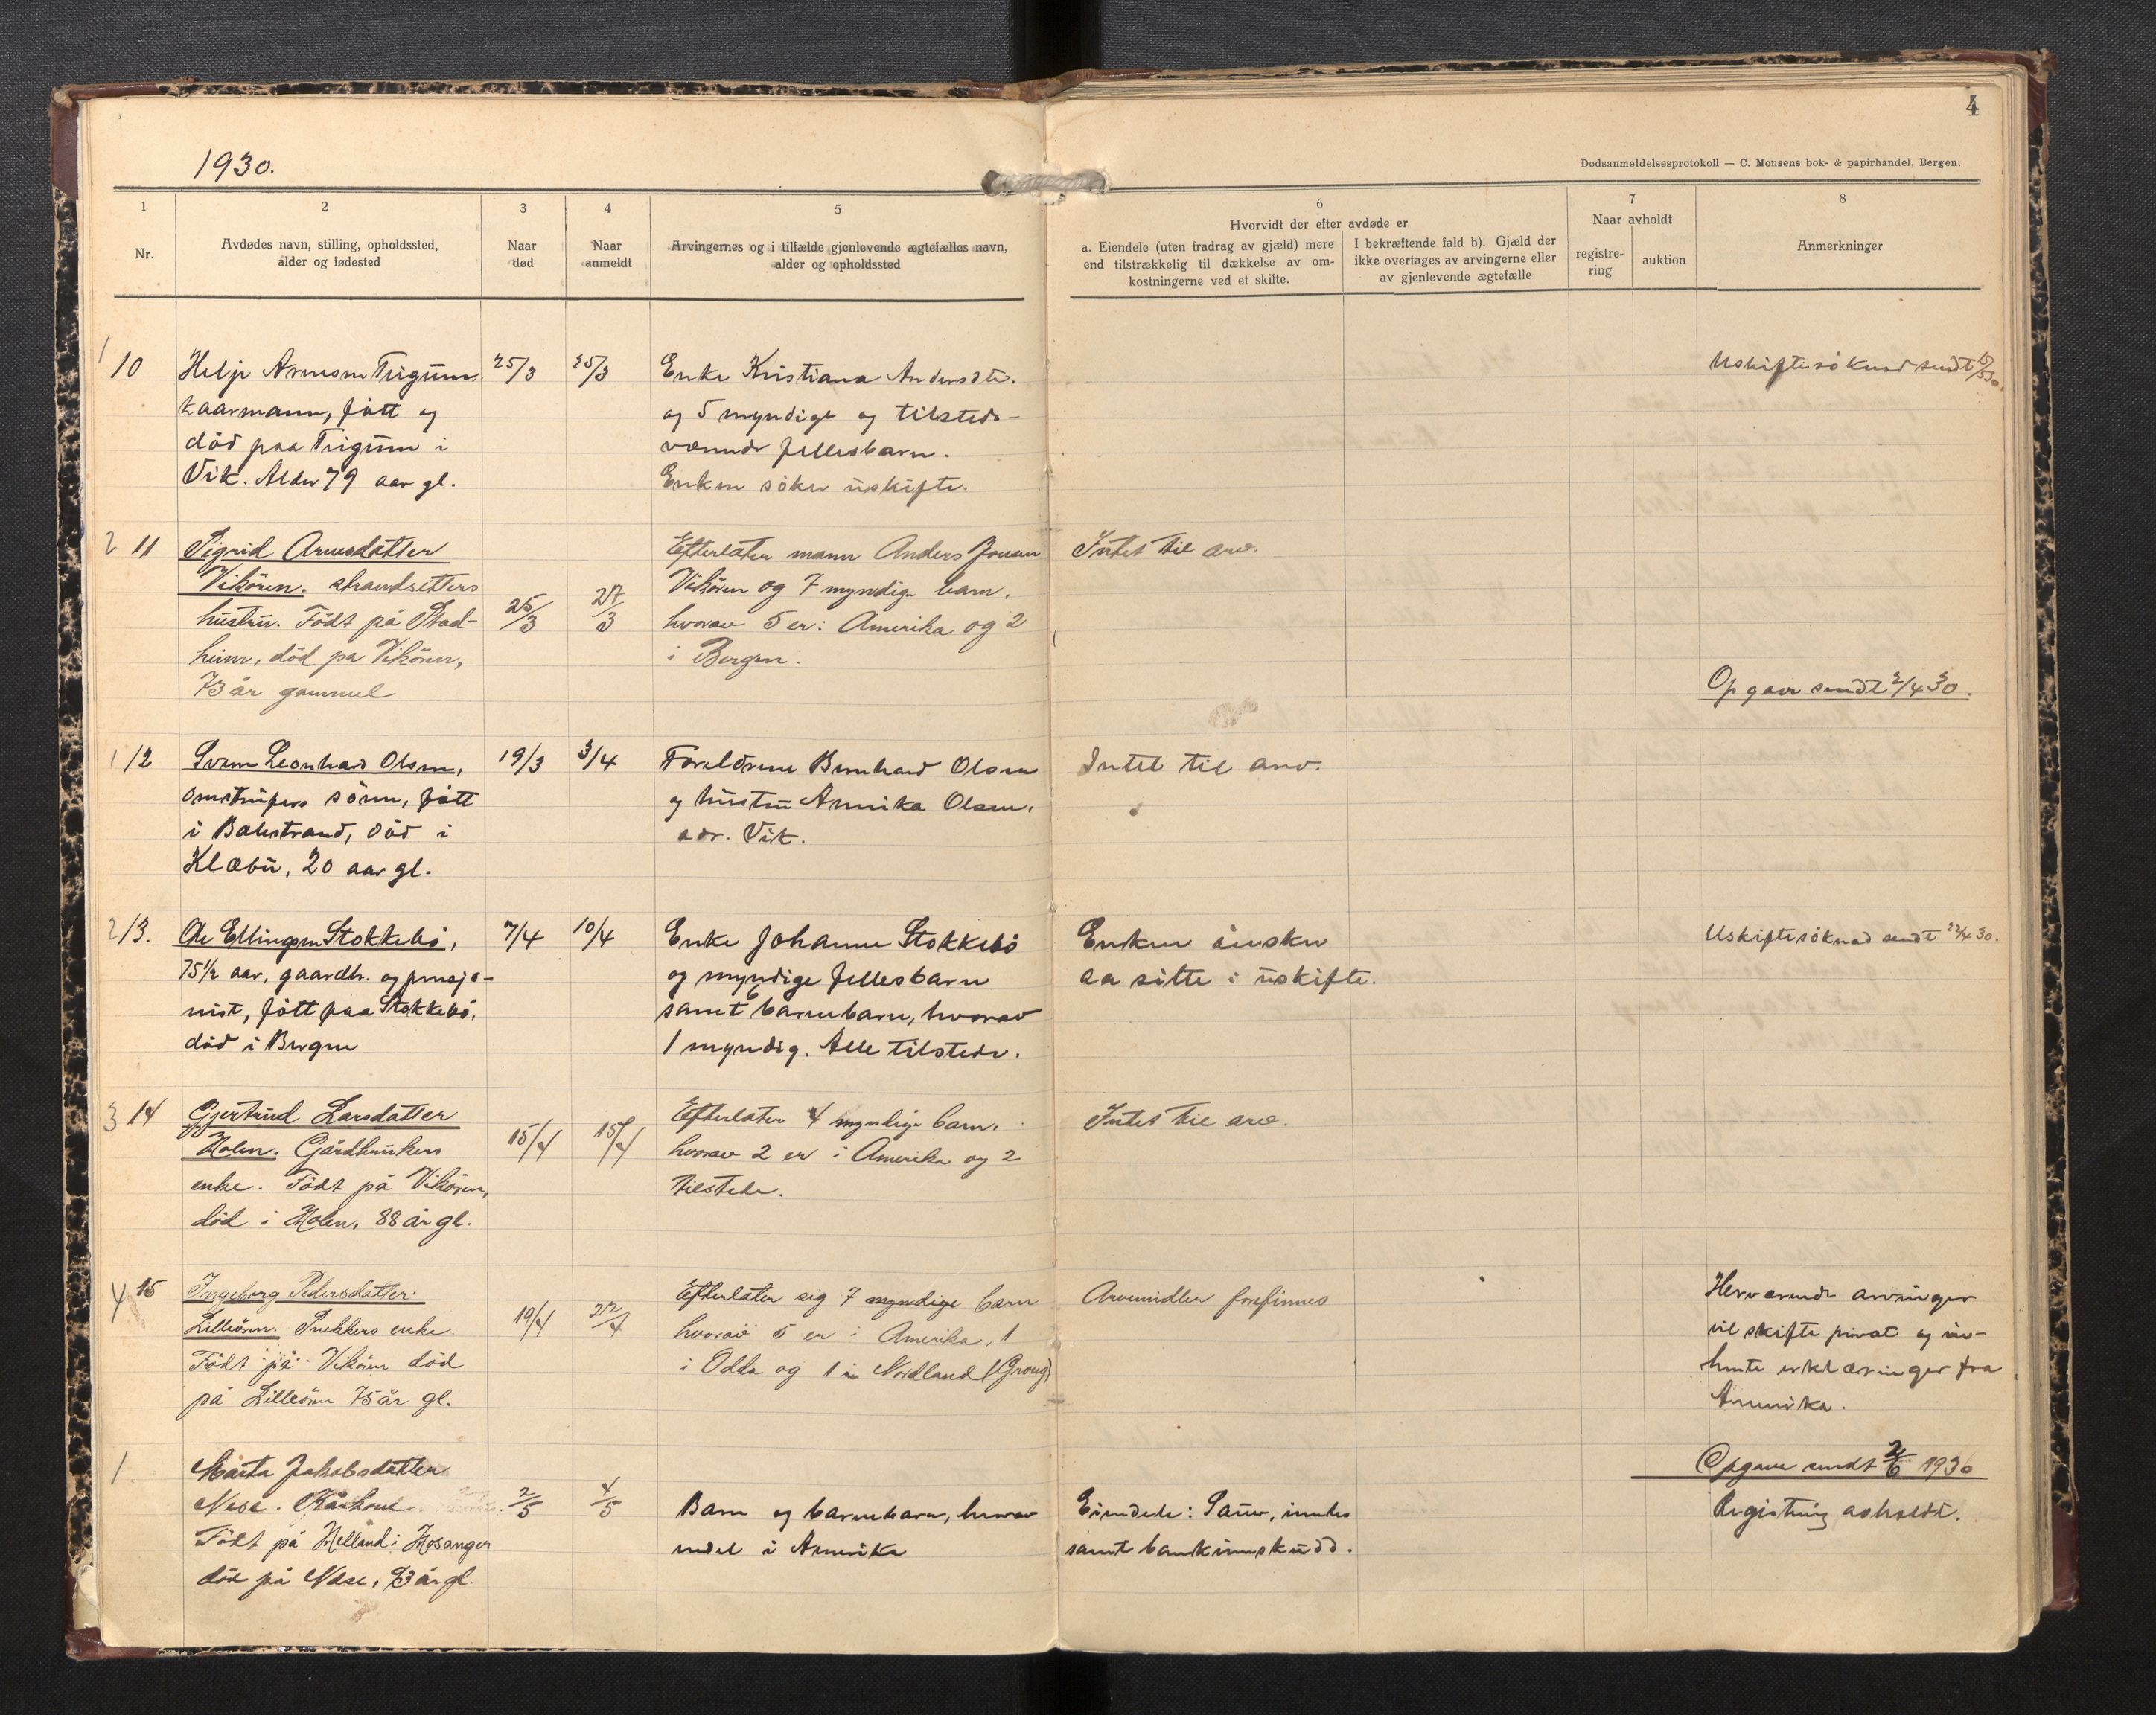 4
1930.
Dødsanmeldelsesprotokoll — C. Monsens bok- & papirhandel, Bergen.
1
2
3
4
5
6
7
8
Nr.
Avdødes navn, stilling, opholdssted,
alder og fødested
Naar
død
Naar
anmeldt
Arvingernes og i tilfælde gjenlevende ægtefælles navn,
alder og opholdssted
Hvorvidt der efter avdøde er
a. Eiendele (uten fradrag av gjæld) mere
end tilstrækkelig til dækkelse av om-
kostningerne ved et skifte.
I bekræftende fald b). Gjæld der
ikke overtages av arvingerne eller
av gjenlevende ægtefælle
Naar avholdt
registre-
ring
auktion
Anmerkninger
1
10
Helje Arnesen Trigum
kaarmann, født og
død paa Trigum i
Vik. Alder 79 aar gl.
25/3
25/3
Enke Kristiana Andersdtr.
og 5 myndige og tilsteds-
værende fellesbarn.
Enken søker uskifte.
Uskiftesøknad sendt
2 11
Sigrid Arnesdatter
Vikøren. strandsitters
hustru. Født på Stad-
heim, død på Vikøren,
73 år gammel
25/3
27/3
Efterlater mann Anders Jonsen
Vikøren og 7 myndige barn,
hvorav 5 er i Amerika og 2
i Bergen.
Intet til arv.
Opgave sendt 2/4 30.
1 12
Svein Leonhard Olsen,
omstreifers sønn, født
i Balestrand, død i
Klæbu, 20 aar gl.
19/3
3/4
Foreldrene Bernhard Olsen
og hustru Annika Olsen.
adr. Vik.
Intet til arv.
2 13.
Ole Ellingsen Stokkebø,
75½ aar, gaardbr. og pensjo-
nist, født paa Stokkebø,
død i Bergen
7/4
10/4
Enke Johanne Stokkebø
og myndige fellesbarn
samt 6 barnebarn, hvorav
1 myndig. Alle tilstede.
Enken ønsker
aa sitte i uskifte.
Uskiftesøknad sendt 22/4 30.
3 14
Gjertrud Larsdatter
Holen. Gårdbrukers
enke. Født på Vikøren,
død i Holen, 88 år gl.
15/4
15/4
Efterlater 4 myndige barn,
hvorav 2 er i Amerika og 2
tilstede.
Intet til arv.
4 15
Ingeborg Pedersdatter
Lilleøren. Snekkers enke.
Født på Vikøren død
på Lilleøren 75 år gl.
19/4
22/4
Efterlater sig 7 myndige barn
hvorav 5 er i Amerika, 1
i Odda og 1 i Nordland (Grong)
Arvemidler forefinnes
Herværende arvinger
vil skifte privat og inn-
hente erklæringer fra
Amerika.
Opgave sendt 2/6 1930
1.
Marta Jakobsdatter
Nese. Kårkone
Født på Helland i Hosanger
død på Nese, 83 år gl.
2/5
4/5
Barn og barnebarn, hvorav
endel i Amerika
Eiendele: Sauer, innbo
samt bankinnskudd.
Registring avholdt.